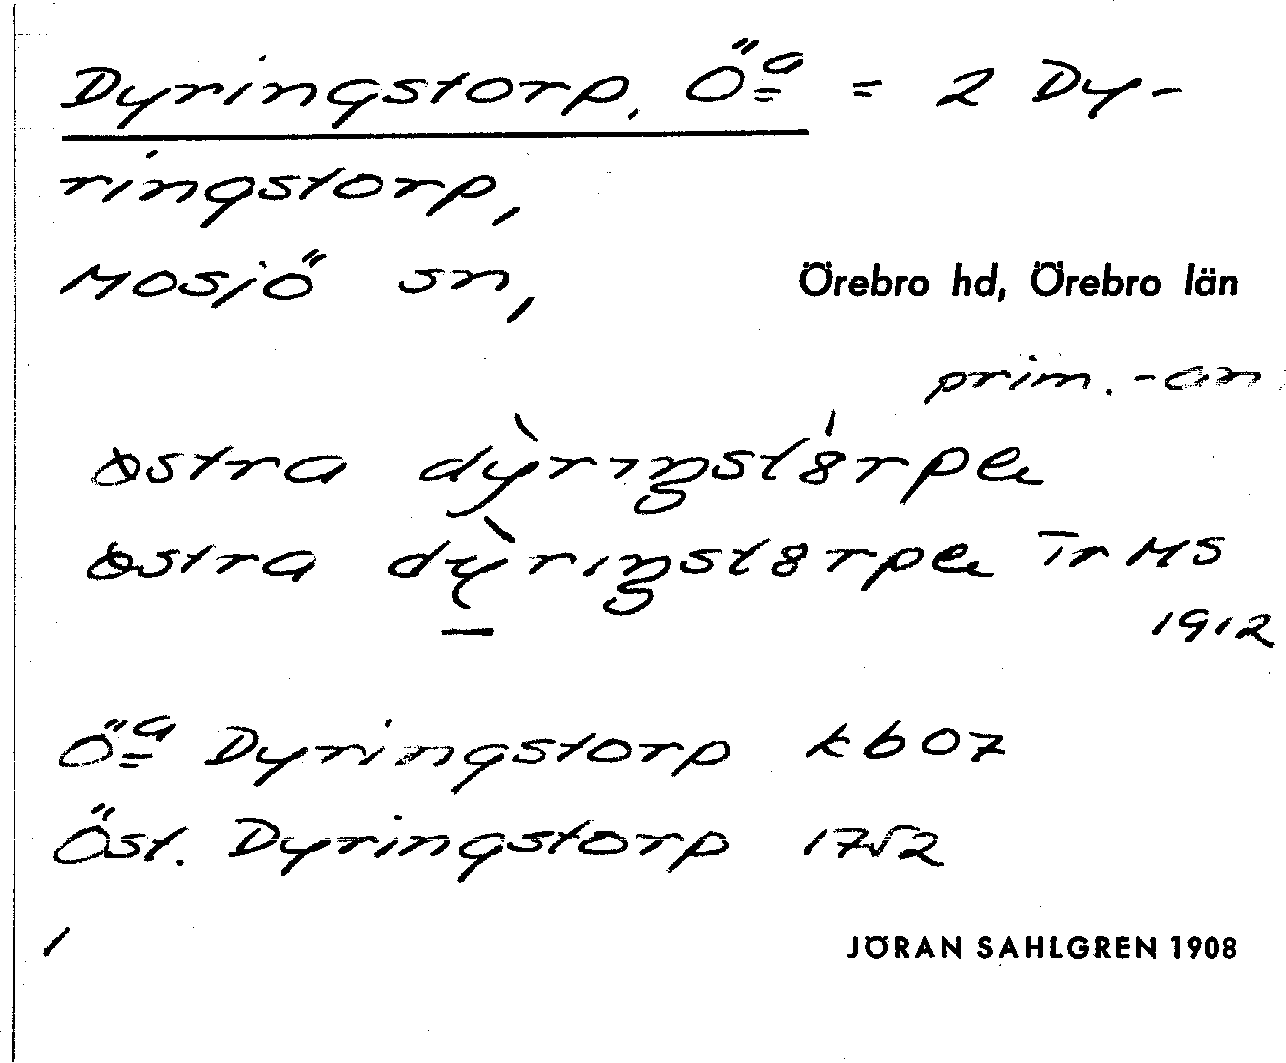 Dyringstorp, Öª = 2 Dy-
ringstorp,
Mosjö sn, Örebro hd, Örebro län
prim. -an
östra dỳrıŋstˈ8rpa
östra dỳrıŋst8rpa Tr MS
1912
Öª Dyringstorp kb 07
Öst. Dyringstorp 1752
/ JÖRAN SAHLGREN 1908